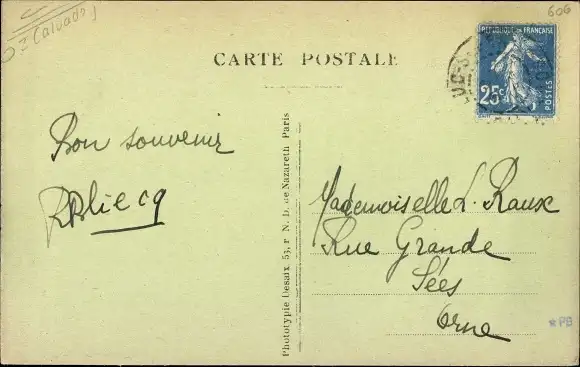 (Calvados)
606
CARTE POSTALE
REPUBLIQUE FRANÇAISE
25c
POSTES
Bon souvenir
Mademoiselle L. Raux
Rue Grande
Sées
Orne
Phototypie Desaix, 53, r N. D. de Nazareth Paris
*PB